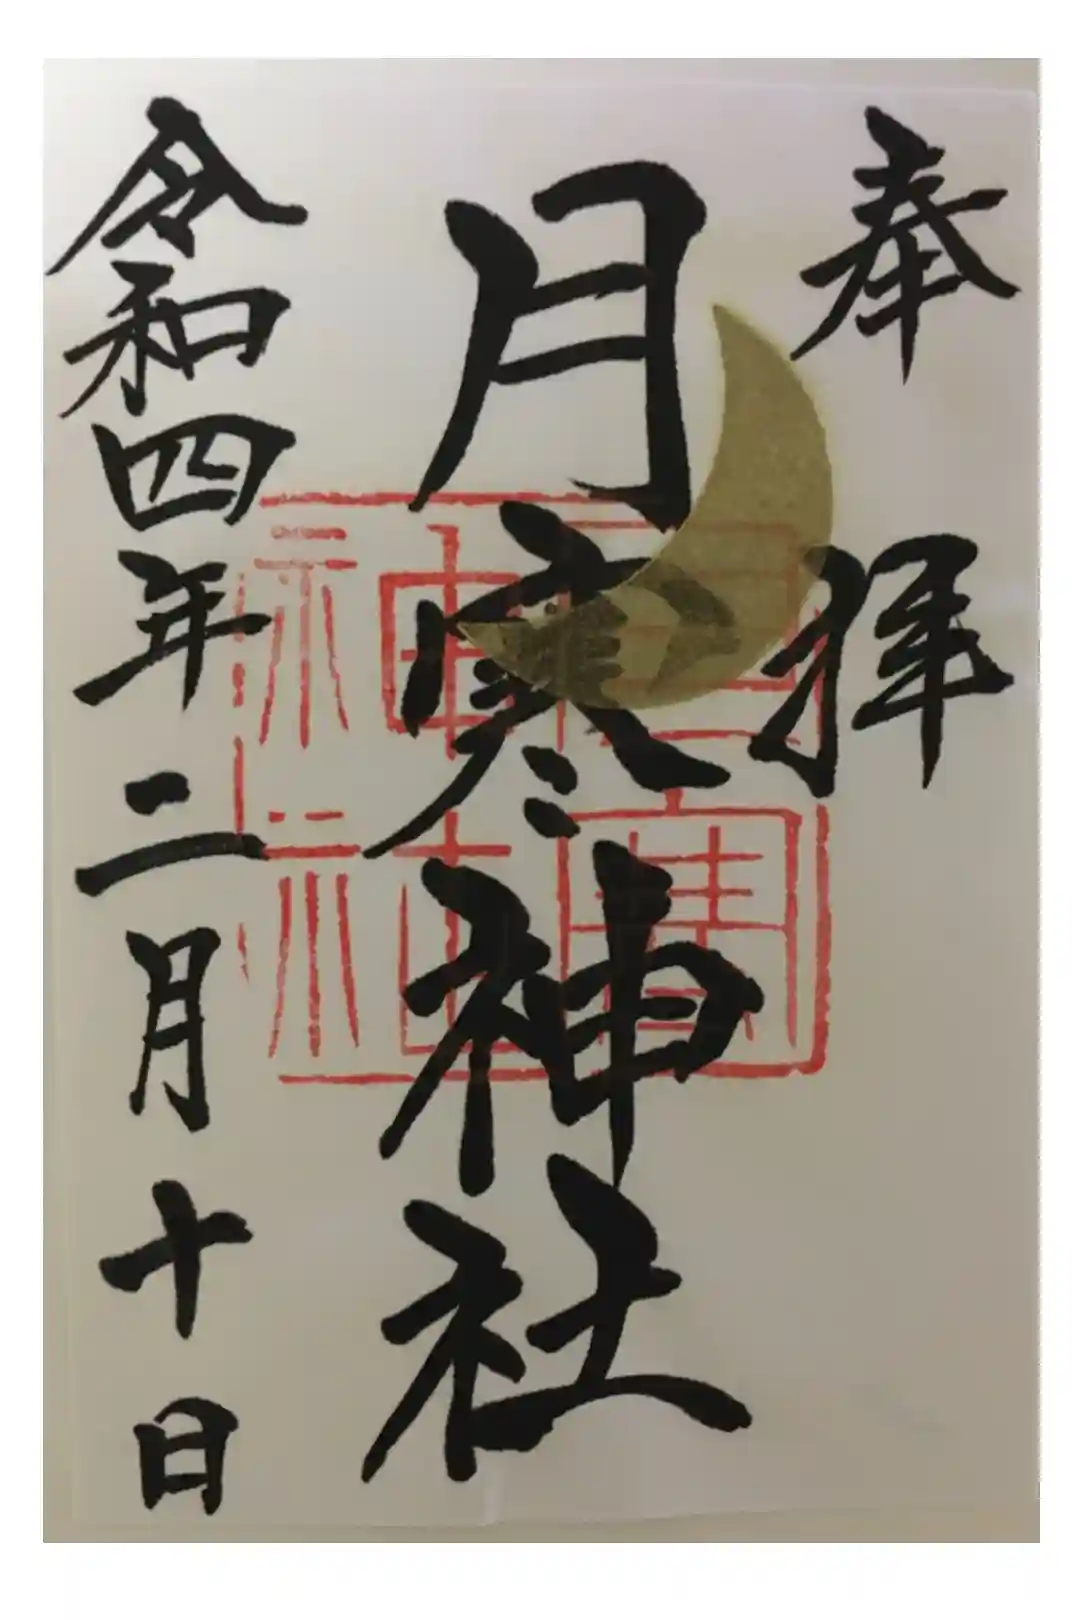 奉拝
月寒神社
令和四年二月十日
月寒神社